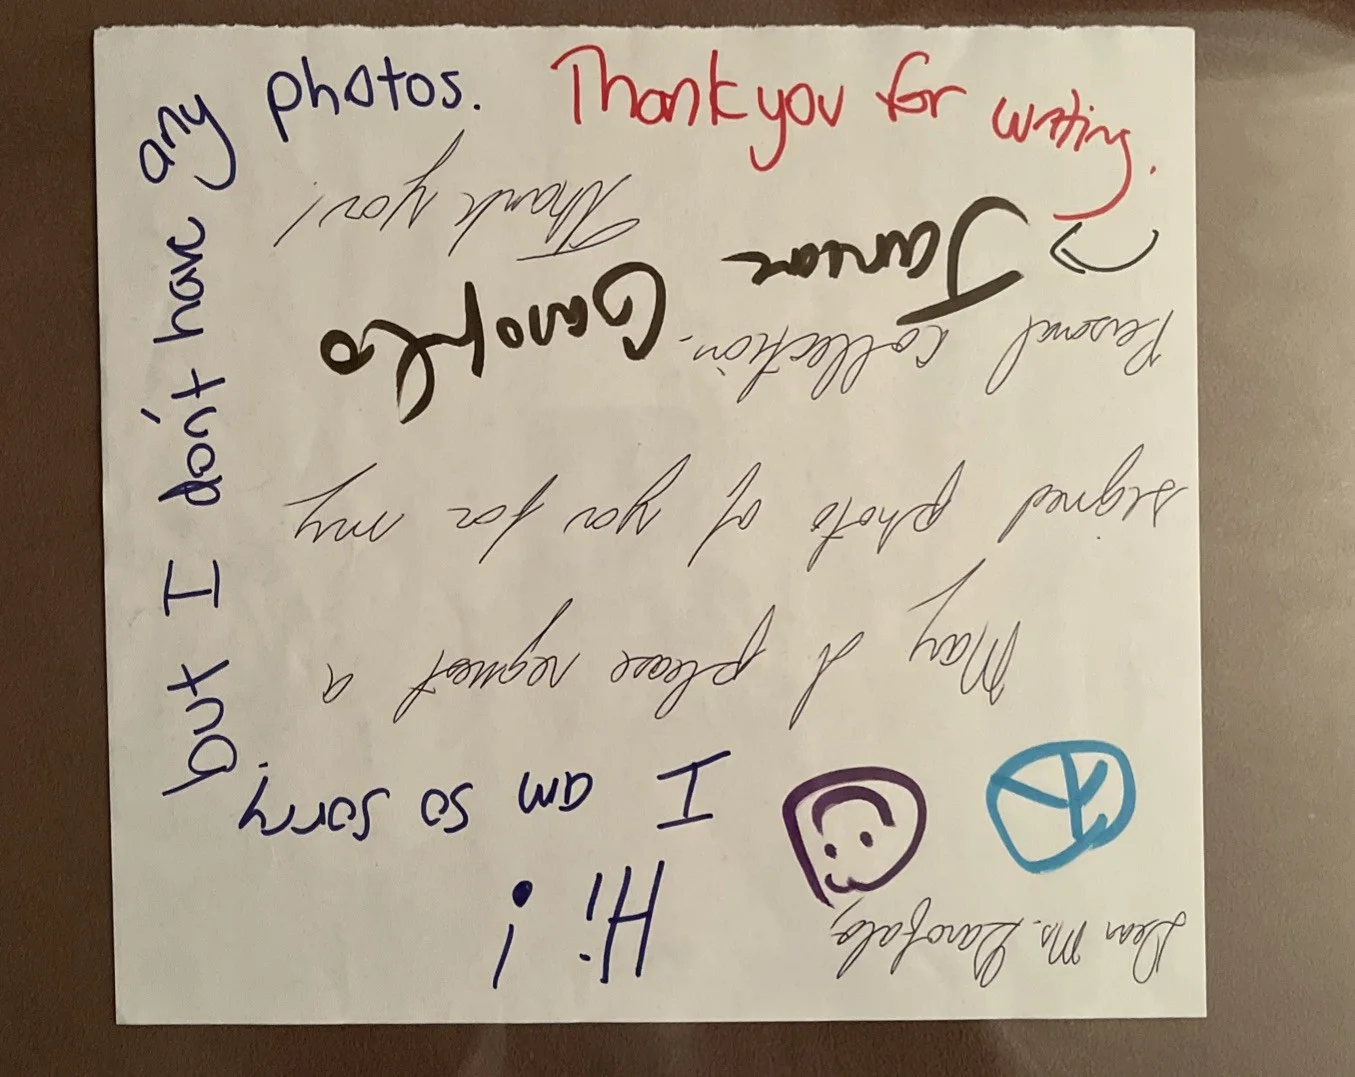 Dear Ms. Garofalo,
May I please request a
signed photo of you for my
Personal collection.
Thank you!
Hi!
I am so sorry
but I don't have any
photos. Thank you for writing.
Janeane
Garofalo